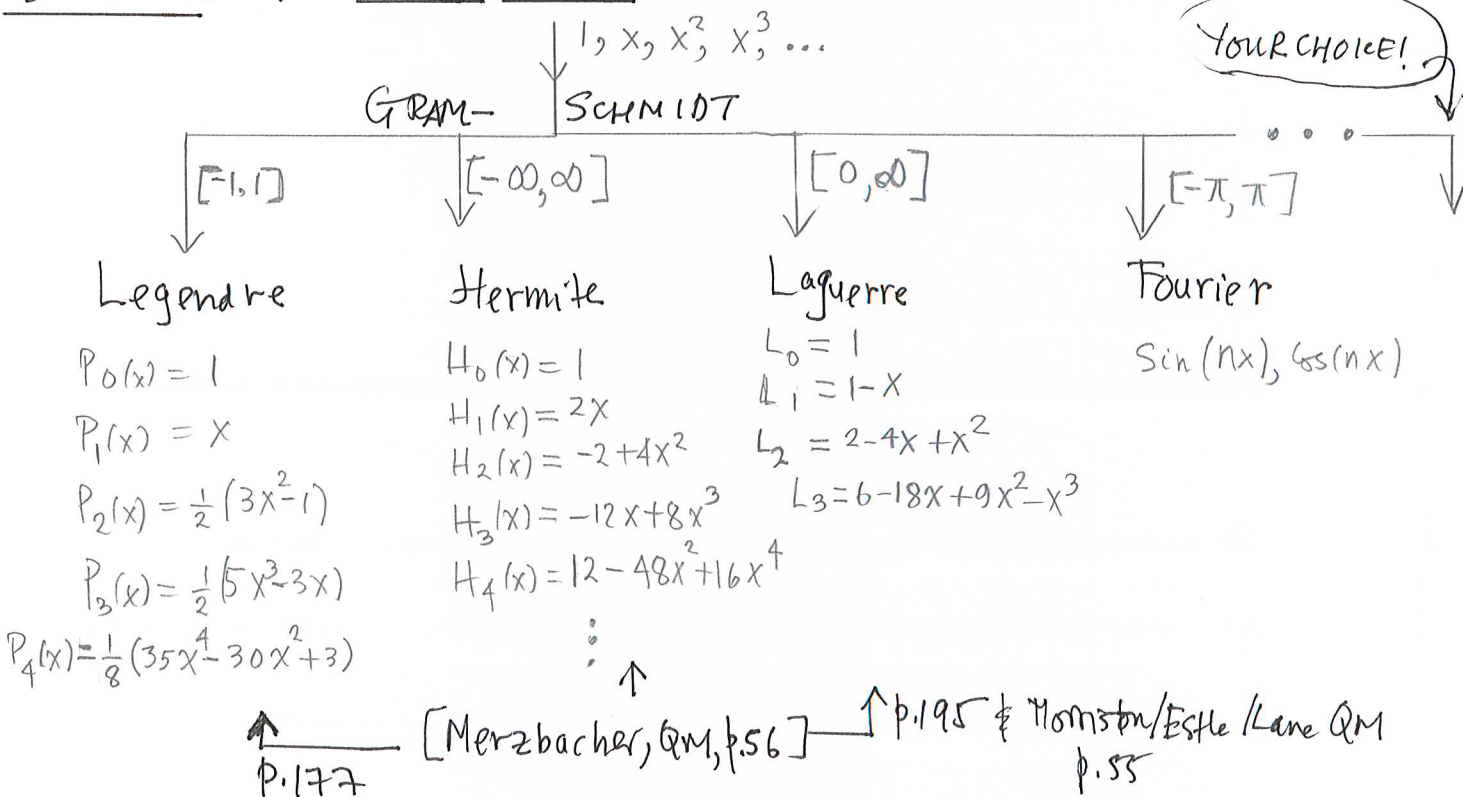 1, x, x², x³, ...
YOUR CHOICE!
GRAM- SCHMIDT
[-1,1]
[-∞,∞]
[0,∞]
[-π, π]
...
Legendre
P₀(x) = 1
P₁(x) = x
P₂(x) = ½ (3x²-1)
P₃(x) = ½ (5x³-3x)
P₄(x) = ⅛ (35x⁴-30x²+3)
Hermite
H₀(x) = 1
H₁(x) = 2x
H₂(x) = -2+4x²
H₃(x) = -12x+8x³
H₄(x) = 12-48x²+16x⁴
⋮
Laguerre
L₀ = 1
L₁ = 1-x
L₂ = 2-4x+x²
L₃ = 6-18x+9x²-x³
Fourier
Sin(nx), Cos(nx)
[Merzbacher, QM, p.56] p.195 & /Estle/Lane QM
p.177
p.55